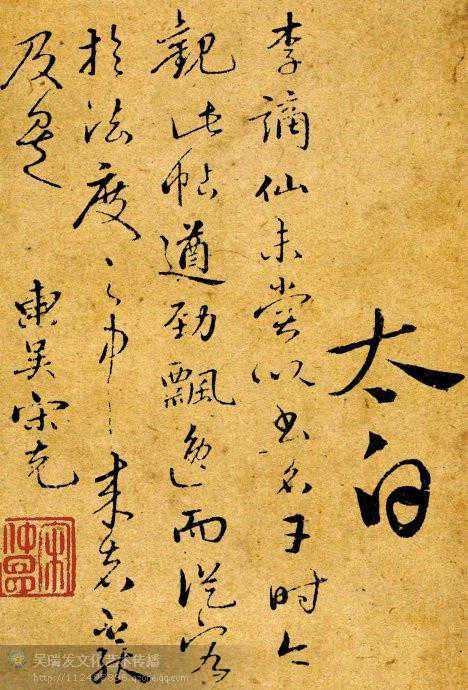 太白
李謫仙未嘗以書名于時今
觀此帖遒勁飄逸而從容
於法度之中
及
東吳宋克
宋仲温
吴瑞发文化艺术传播